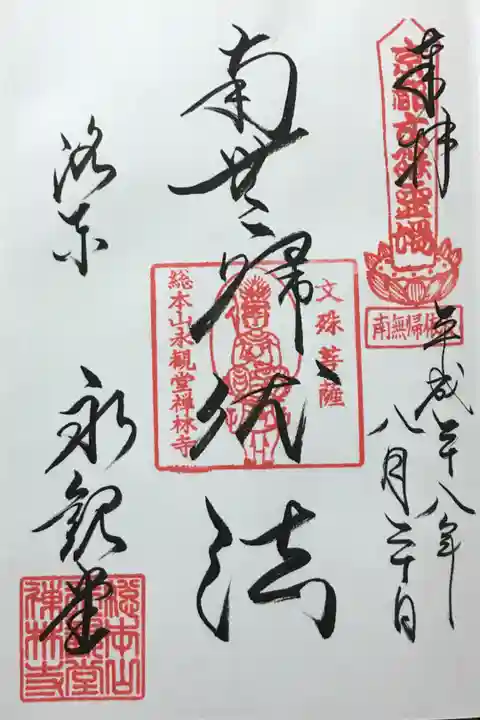 奉拝
平成二十八年
八月二十日
京都文殊霊場
南無帰依
南無帰依法
文殊菩薩
総本山永観堂禅林寺
洛东
永観堂
総本山
永観堂
禅林寺